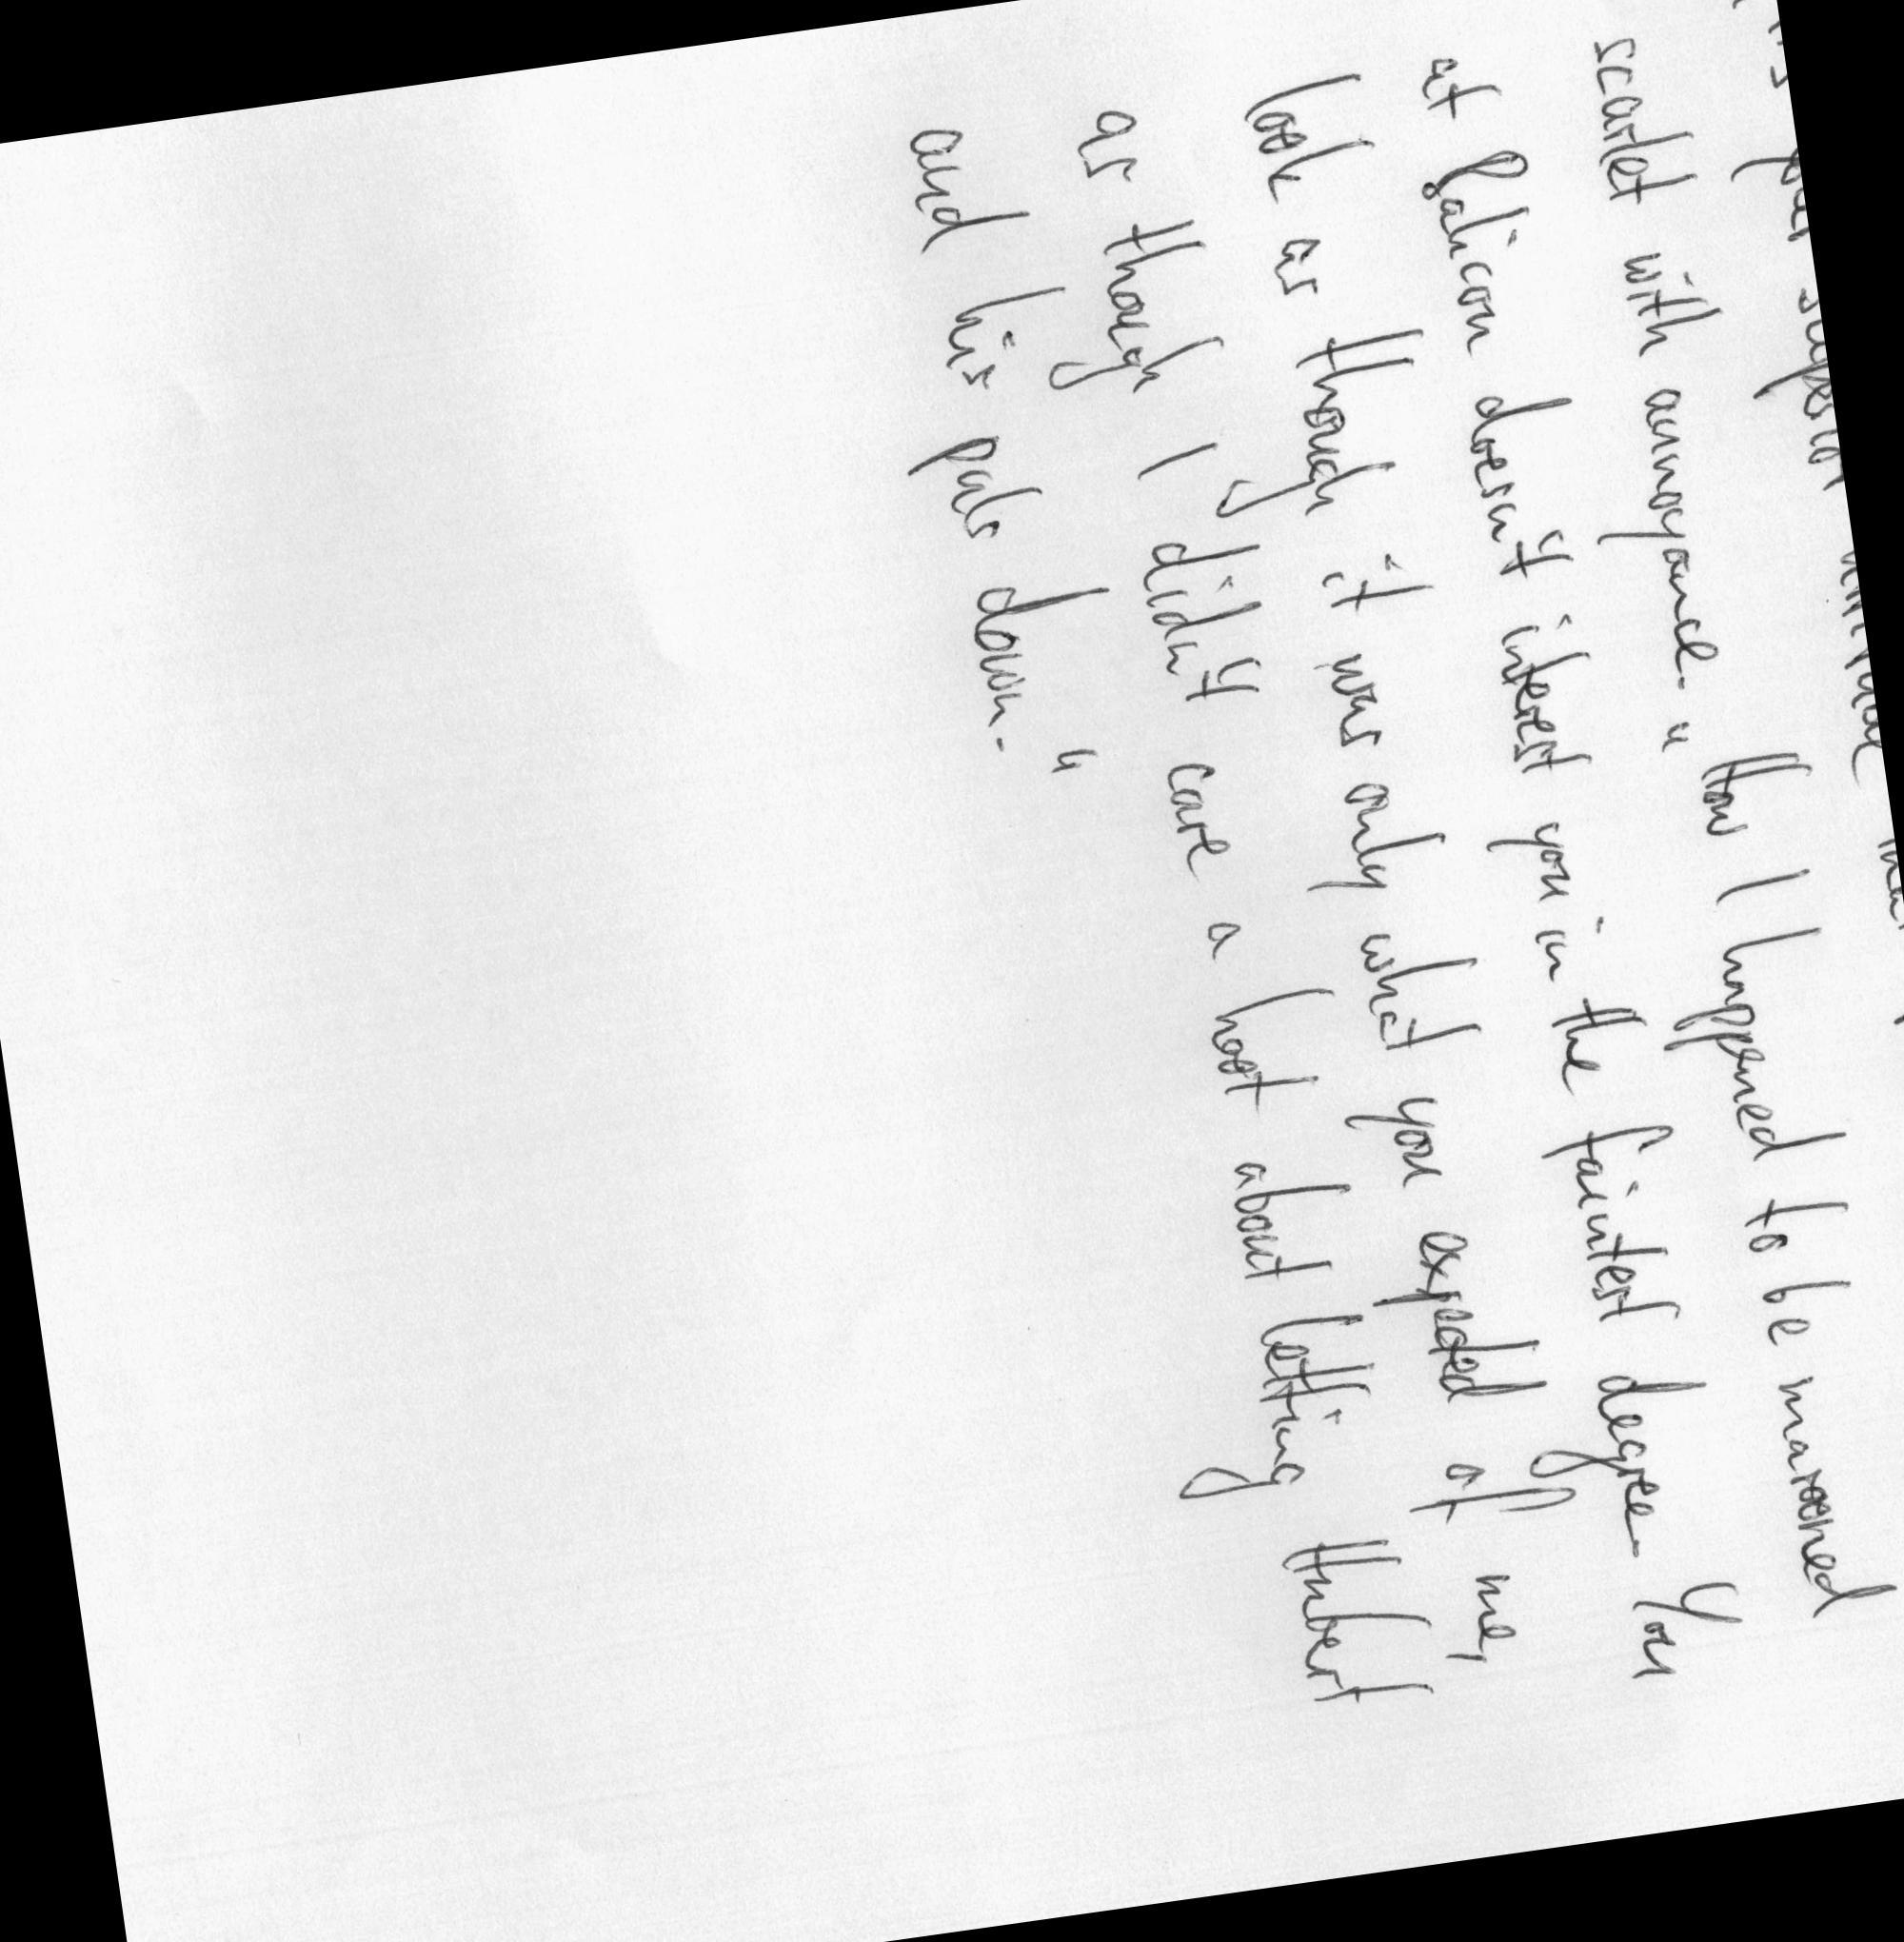 your superior attitude
scarlet with annoyance. " How I happened to be marooned
at Balicou doesn't interest you in the faintest degree. You
look as though it was only what you expected of me,
as though I didn't care a hoot about letting Hubert
and his pals down. "